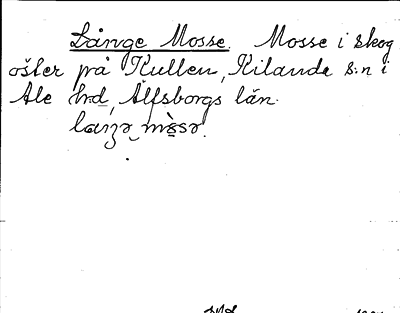 Långe Mosse. Mosse i skog
öster på Kullen, Kilanda s:n i
Ale hrd, Älfsborgs län.